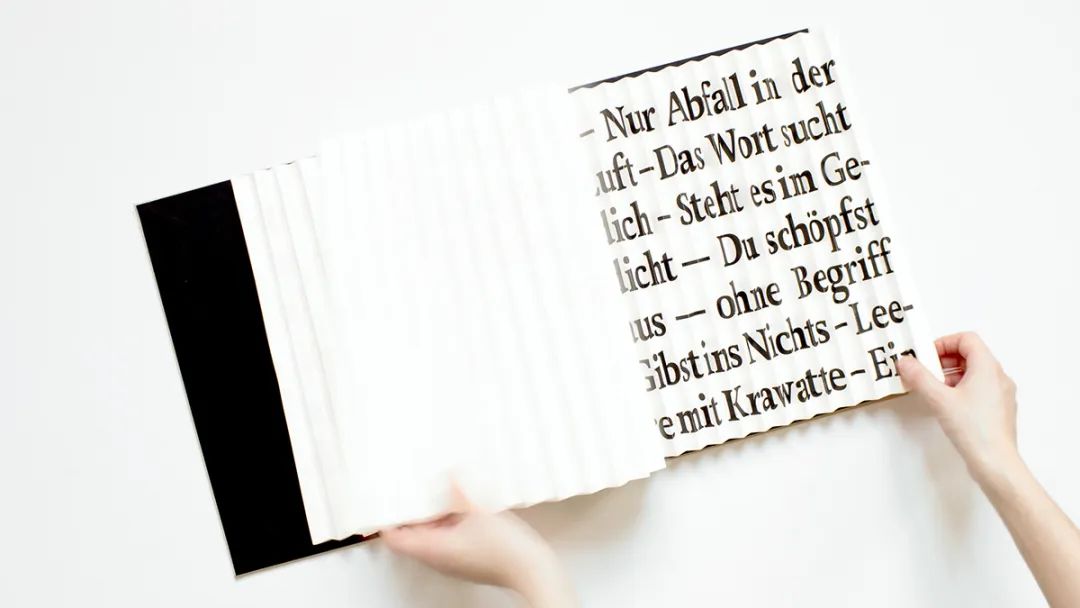 – Nur Abfall in der
uft – Das Wort sucht
lich – Steht es im Ge-
licht — Du schöpfst
us — ohne Begriff
Gibst ins Nichts – Lee-
e mit Krawatte – Ein